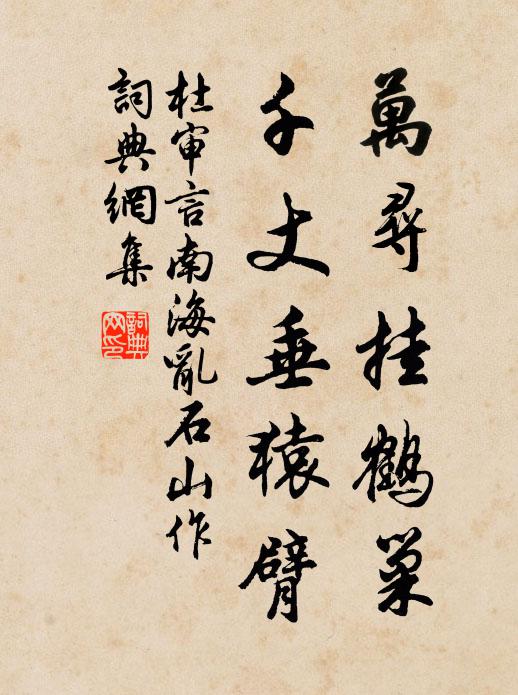 萬尋挂鶴巢
千丈垂猿臂
杜审言南海亂石山作
詞典網集
詞典網印